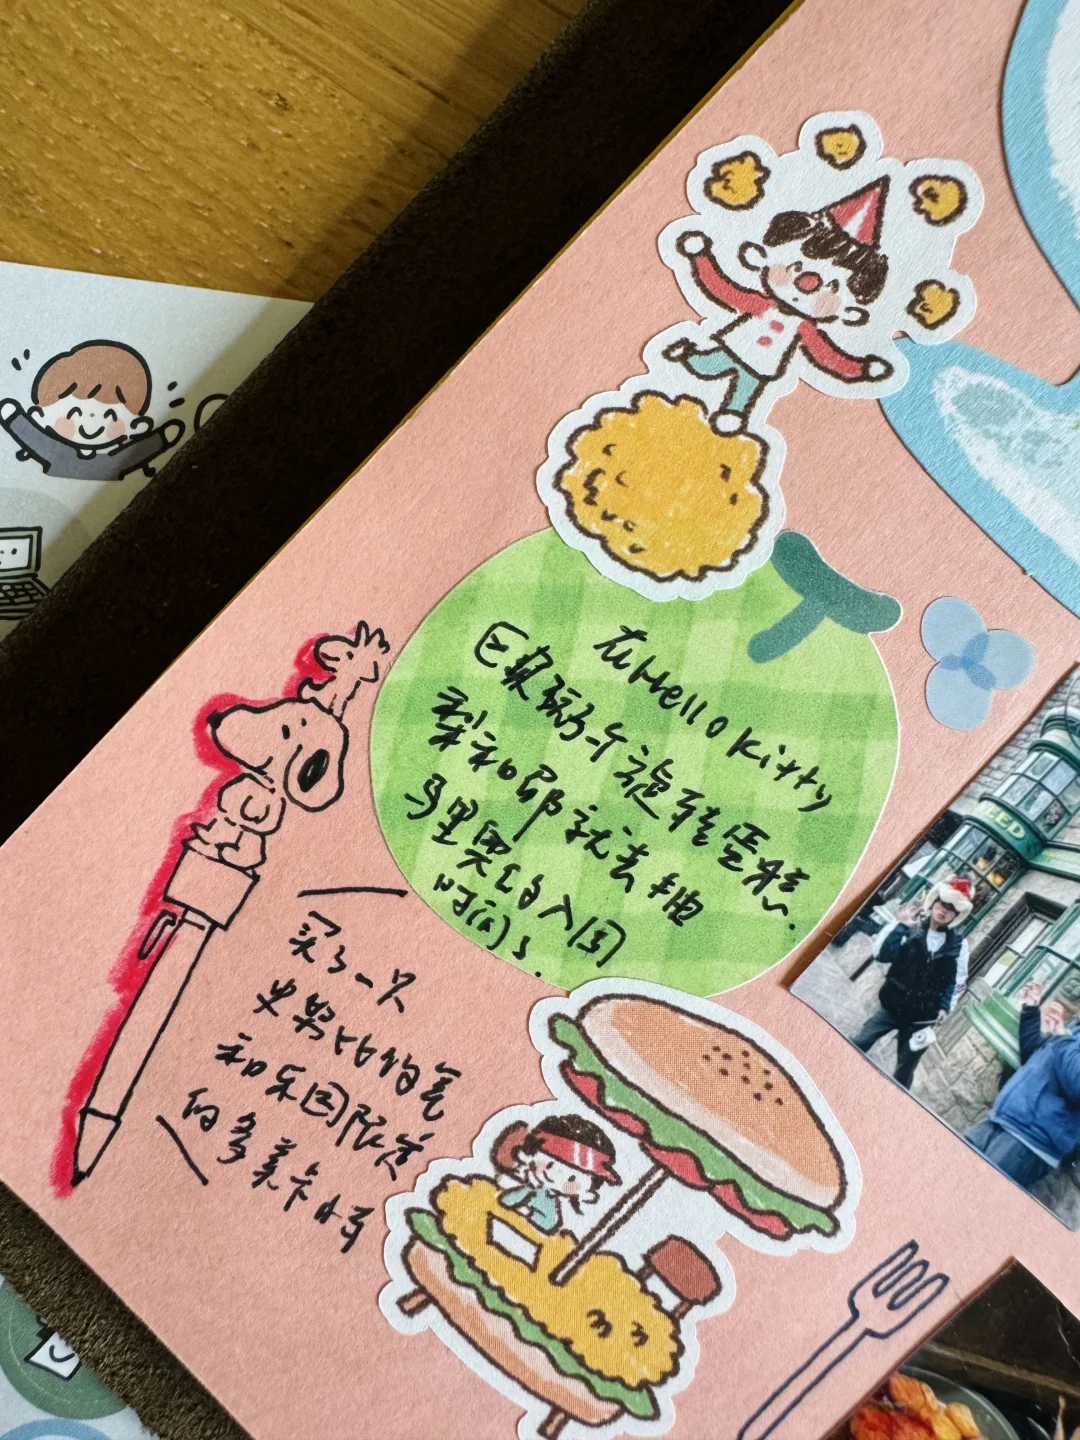 在Hello Kitty
区域玩了一个旋转蛋糕
梨和郎就去抽
马里奥的入园
时间了.
买了一只
史努比的笔
和乐园限定
的多美卡小车
EED